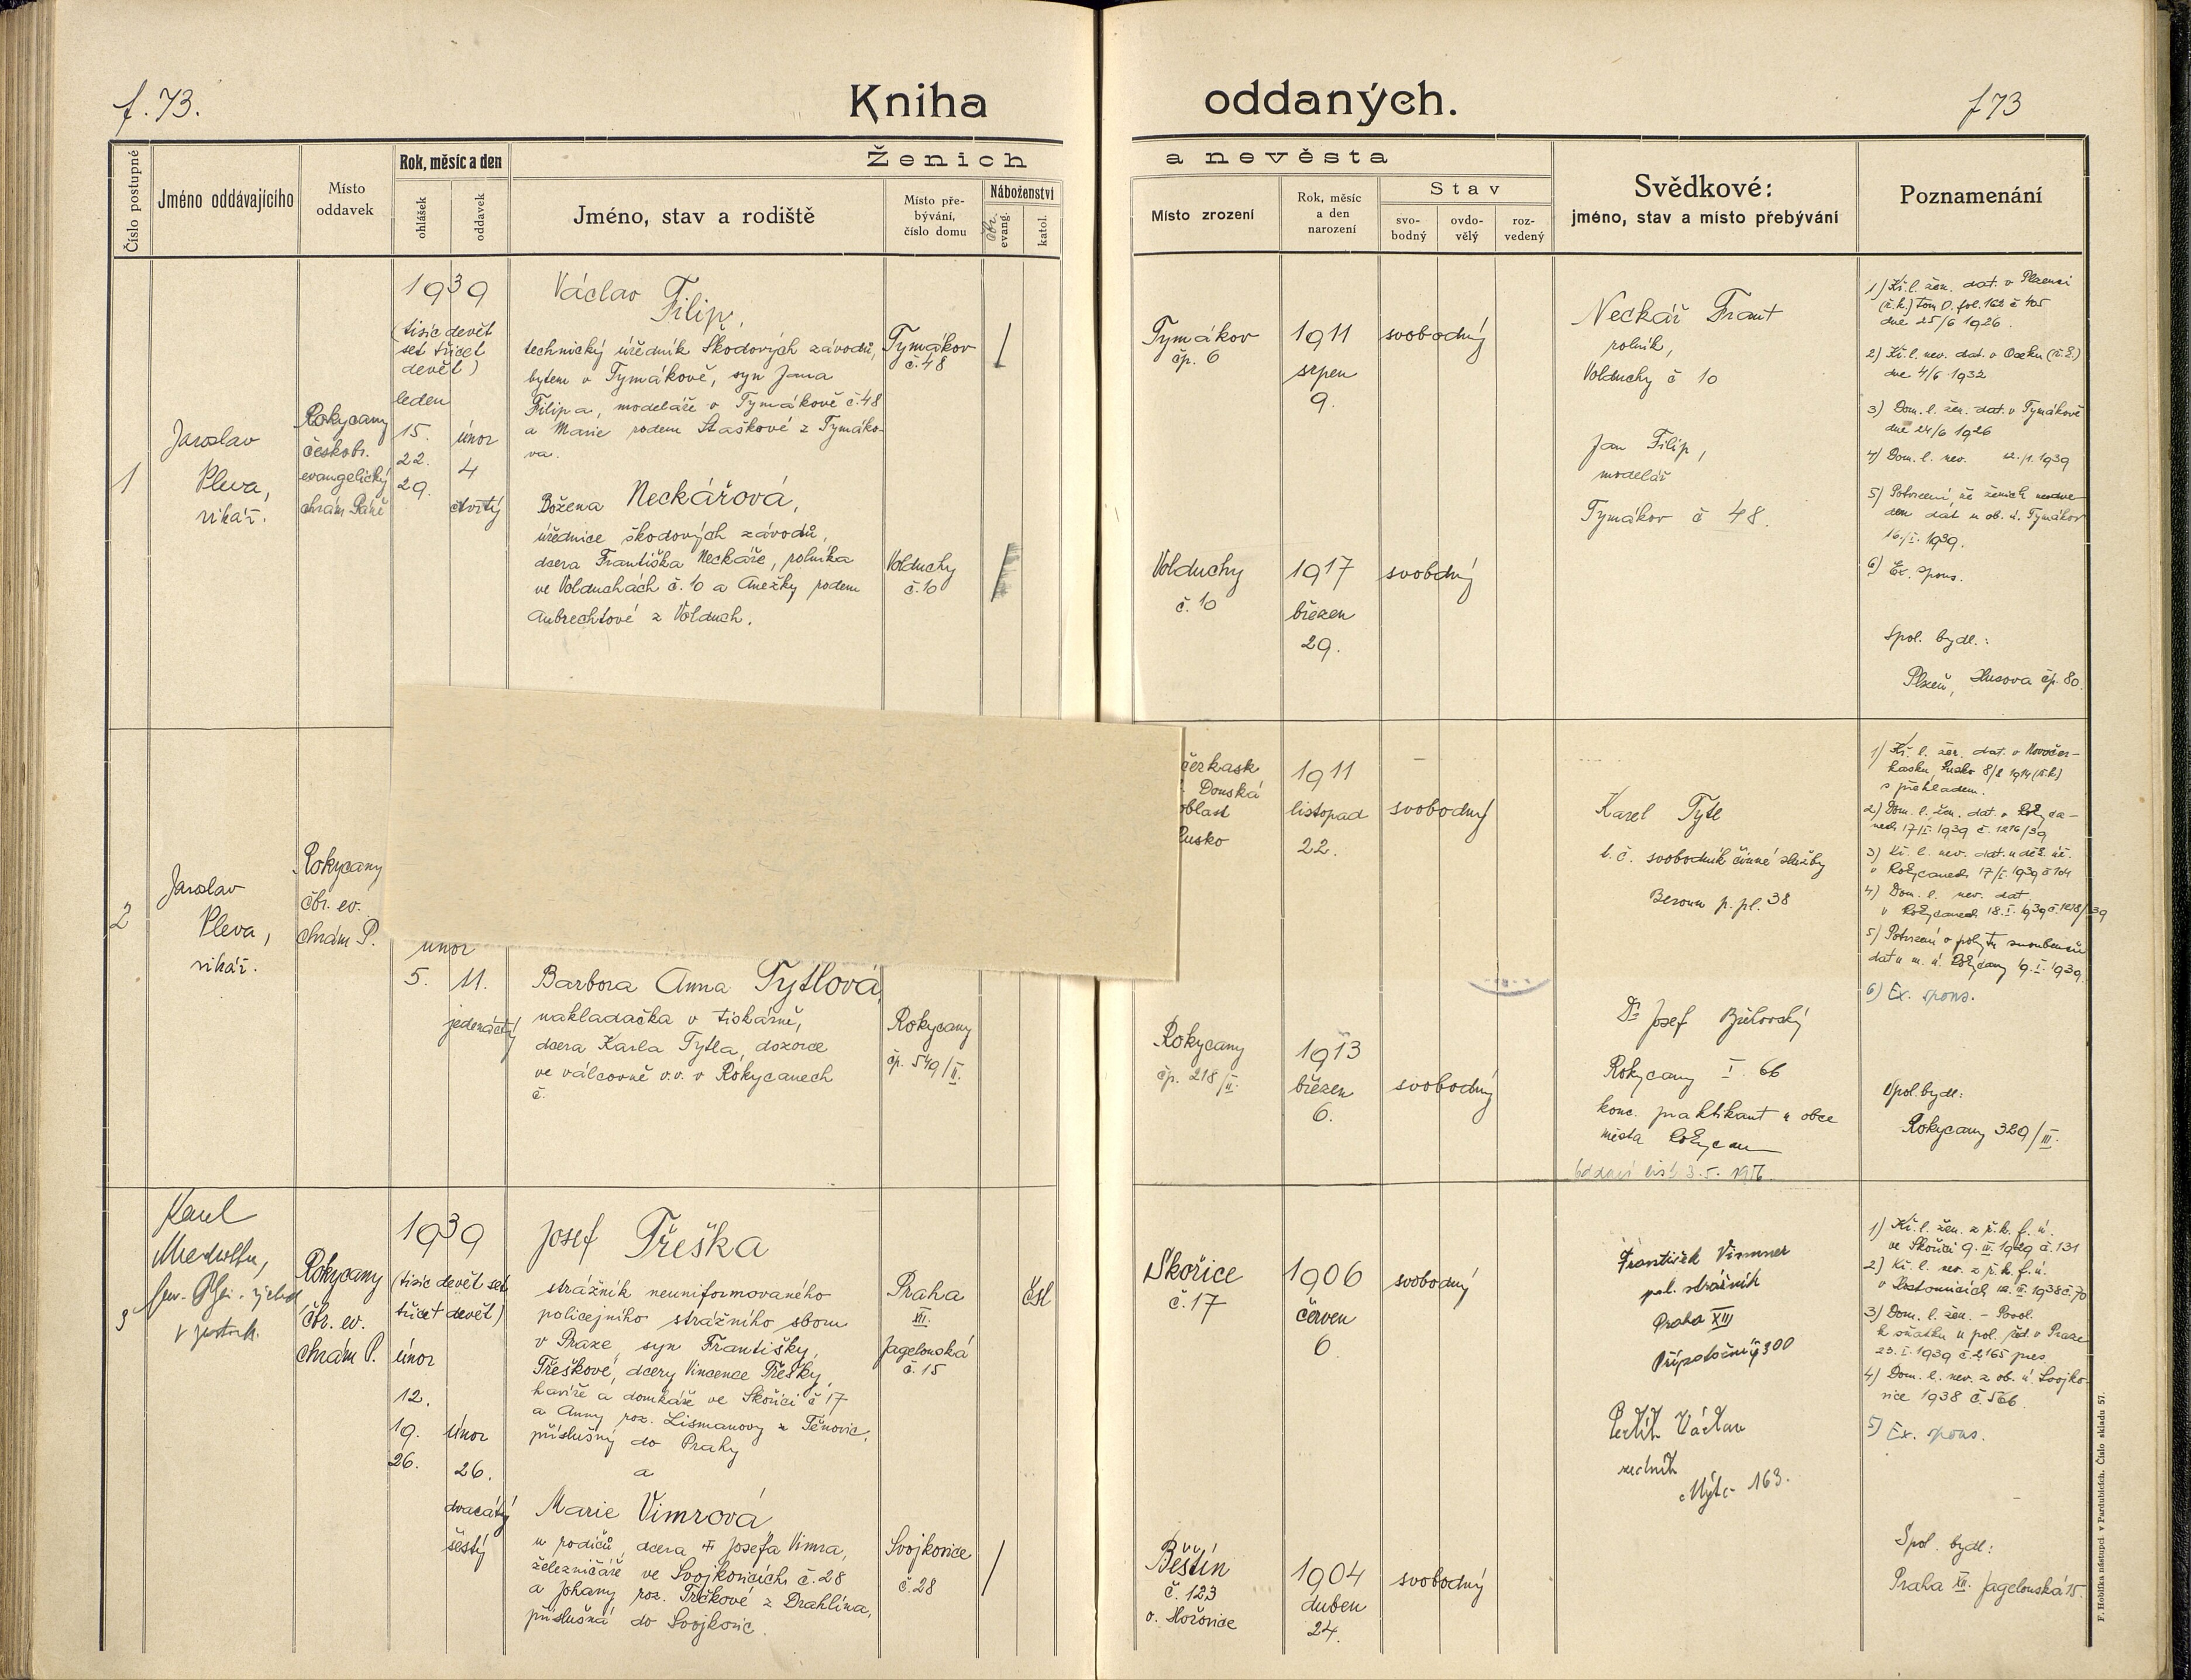 f. 73.
Kniha oddaných.
f 73
Číslo postupné
Jméno oddávajícího
Místo
oddavek
Rok, měsíc a den
ohlášek
oddavek
Ženich a nevěsta
Jméno, stav a rodiště
Místo pře-
bývání,
číslo domu
Náboženství
čbr.
evang.
katol.
Místo zrození
Rok, měsíc
a den
narození
Stav
svo-
bodný
ovdo-
vělý
roz-
vedený
Svědkové:
jméno, stav a místo přebývání
Poznamenání
1
Jaroslav
Pleva,
vikář.
Rokycany
českobr.
evangelický
chrám Páně
1939
(tisíc devět
set třicet
devět)
leden
15.
22.
29.
únor
4
čtvrtý
Václav Filip,
technický úředník Škodových závodů,
bytem v Tymákově, syn Jana
Filipa, modeláře v Tymákově č. 48
a Marie rodem Staškové z Tymáko-
va.
Tymákov
č. 48
Božena Neckářová,
úřednice škodových závodů,
dcera Františka Neckáře, rolníka
ve Volduchách č. 10 a Anežky rodem
Aubrechtové z Volduch.
Volduchy
č. 10
Tymákov
čp. 6
1911
srpen
9.
svobodný
Volduchy
č. 10
1917
březen
29.
svobdný
Neckář Frant
rolník,
Volduchy č 10
Jan Filip,
modelář
Tymákov č 48.
1) Kř. l. žen. dat. v Plzenci
(ř. k.) tom O. fol. 162 č 405
dne 25/6 1926.
2) Kř. l. nev. dat. v Oseku (ř. k.)
dne 4/6 1932
3) Dom. l. žen. dat. v Tymákově
dne 24/6 1926
4) Dom. l. nev. 12./1. 1939
5) Potvrzení, že ženich
dat u ob. ú. Tymákov
16./I. 1939.
6) Ex. spons.
Spol. bydl.:
Plzeň, Husova čp. 80.
2
Jaroslav
Pleva,
vikář.
Rokycany
čbr. ev.
chrám P.
únor
5. 11.
jedenáctý
Barbora Anna Tytlová,
nakladačka v tiskárně,
dcera Karla Tytla, dozorce
ve válcovně v.v. v Rokycanech
č.
Rokycany
čp. 549/II.
čerkask
Donská
oblast
Rusko
1911
listopad
22.
svobodný
Rokycany
čp. 218/II.
1913
březen
6.
svobodný
Karel Tytl
t. č. svobodník činné služby
Beroun p. pl. 38
Dr Josef
Rokycany I 66
konc. praktikant u obce
města Rokycan
oddací list 3. 5.
1) Kř. l. žen. dat. v Novočer-
kasku, Rusko 8/2 1914 (ř. k.)
s překladem.
2) Dom. l. žen. dat. v Rokyca-
nech 17/I. 1939 č. 1216/39
3) Kř. l. nev. dat. u děk. úř.
v Rokycanech 17/I. 1939 č 104
4) Dom. l. nev. dat.
v Rokycanech 18. I. 1939 č. 1218/39
5) Potvrzení o pobytu snoubenců
dat u m. ú. Rokycany 19. I. 1939.
6) Ex. spons.
Spol. bydl:
Rokycany 329/III.
3
Karel
Rokycany
čbr. ev.
chrám P.
1939
(tisíc devět set
třicet devět)
únor
12.
19.
26.
únor
26.
dvacátý
šestý
Josef Třeška
strážník neuniformovaného
policejního strážního sboru
v Praze, syn Františky,
Třeškové, dcery Vincence Třešky,
havíře a domkáře ve Skořici č 17
a Anny roz. Lismanovy z Těnovic,
příslušný do Prahy
a
Praha
XII.
Jagelonská
č. 15
čsl
Marie Vimrová
u rodičů, dcera Josefa Vimra,
železničáře ve Svojkovicích č. 28
a Johany roz. Trčkové z Drahlína,
příslušná do Svojkovic.
Svojkovice
č. 28
Skořice
č. 17
1906
červen
6
svobodný
Běštín
č. 123
o. Hořovice
1904
duben
24.
svobodný
František Vimmer
pol. strážník
Praha XIII
Přípotoční 300
Václav
Mýto 163.
1) Kř. l. žen. z ř. k. f. ú.
ve Skořici 9. II. 1929 č. 131
2) Kř. l. nev. z ř. k. f. ú.
3) Dom. l. žen. – Povol.
k sňatku u pol. řed. v Praze
23. I. 1939 č. 2165 pres
4) Dom. l. nev. z ob. ú. Svojko-
vice 1938 č. 566.
5) Ex. spons.
Spol. bydl:
Praha XII. Jagelonská 15.
F. Hoblíka nástupci v Pardubicích. Číslo skladu 57.